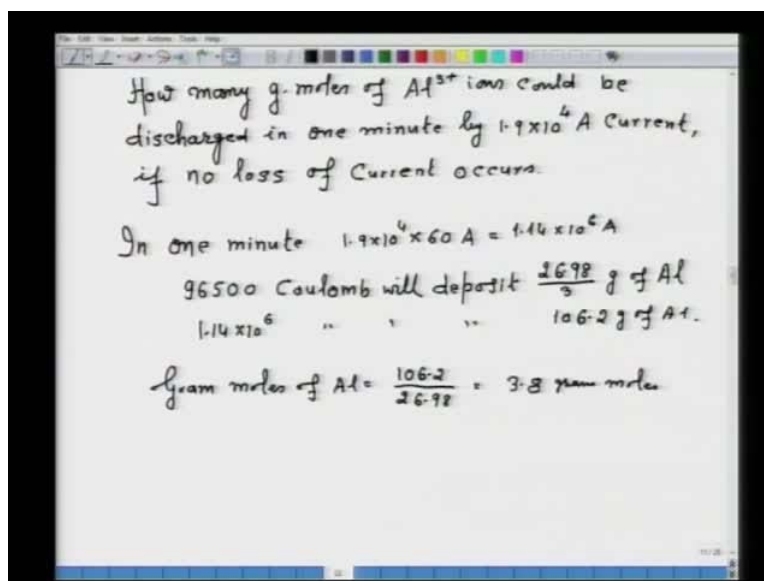 How many g.moles of Al³⁺ ions could be
discharged in one minute by 1.9x10⁴ A Current,
if no loss of Current occurs.
In one minute 1.9x10⁴ x 60 A = 1.14 x10⁶ A
96500 Coulomb will deposit 26.98/3 g of Al
1.14 x10⁶ " " " 106.2 g of Al.
Gram moles of Al = 106.2/26.98 = 3.8 gram moles